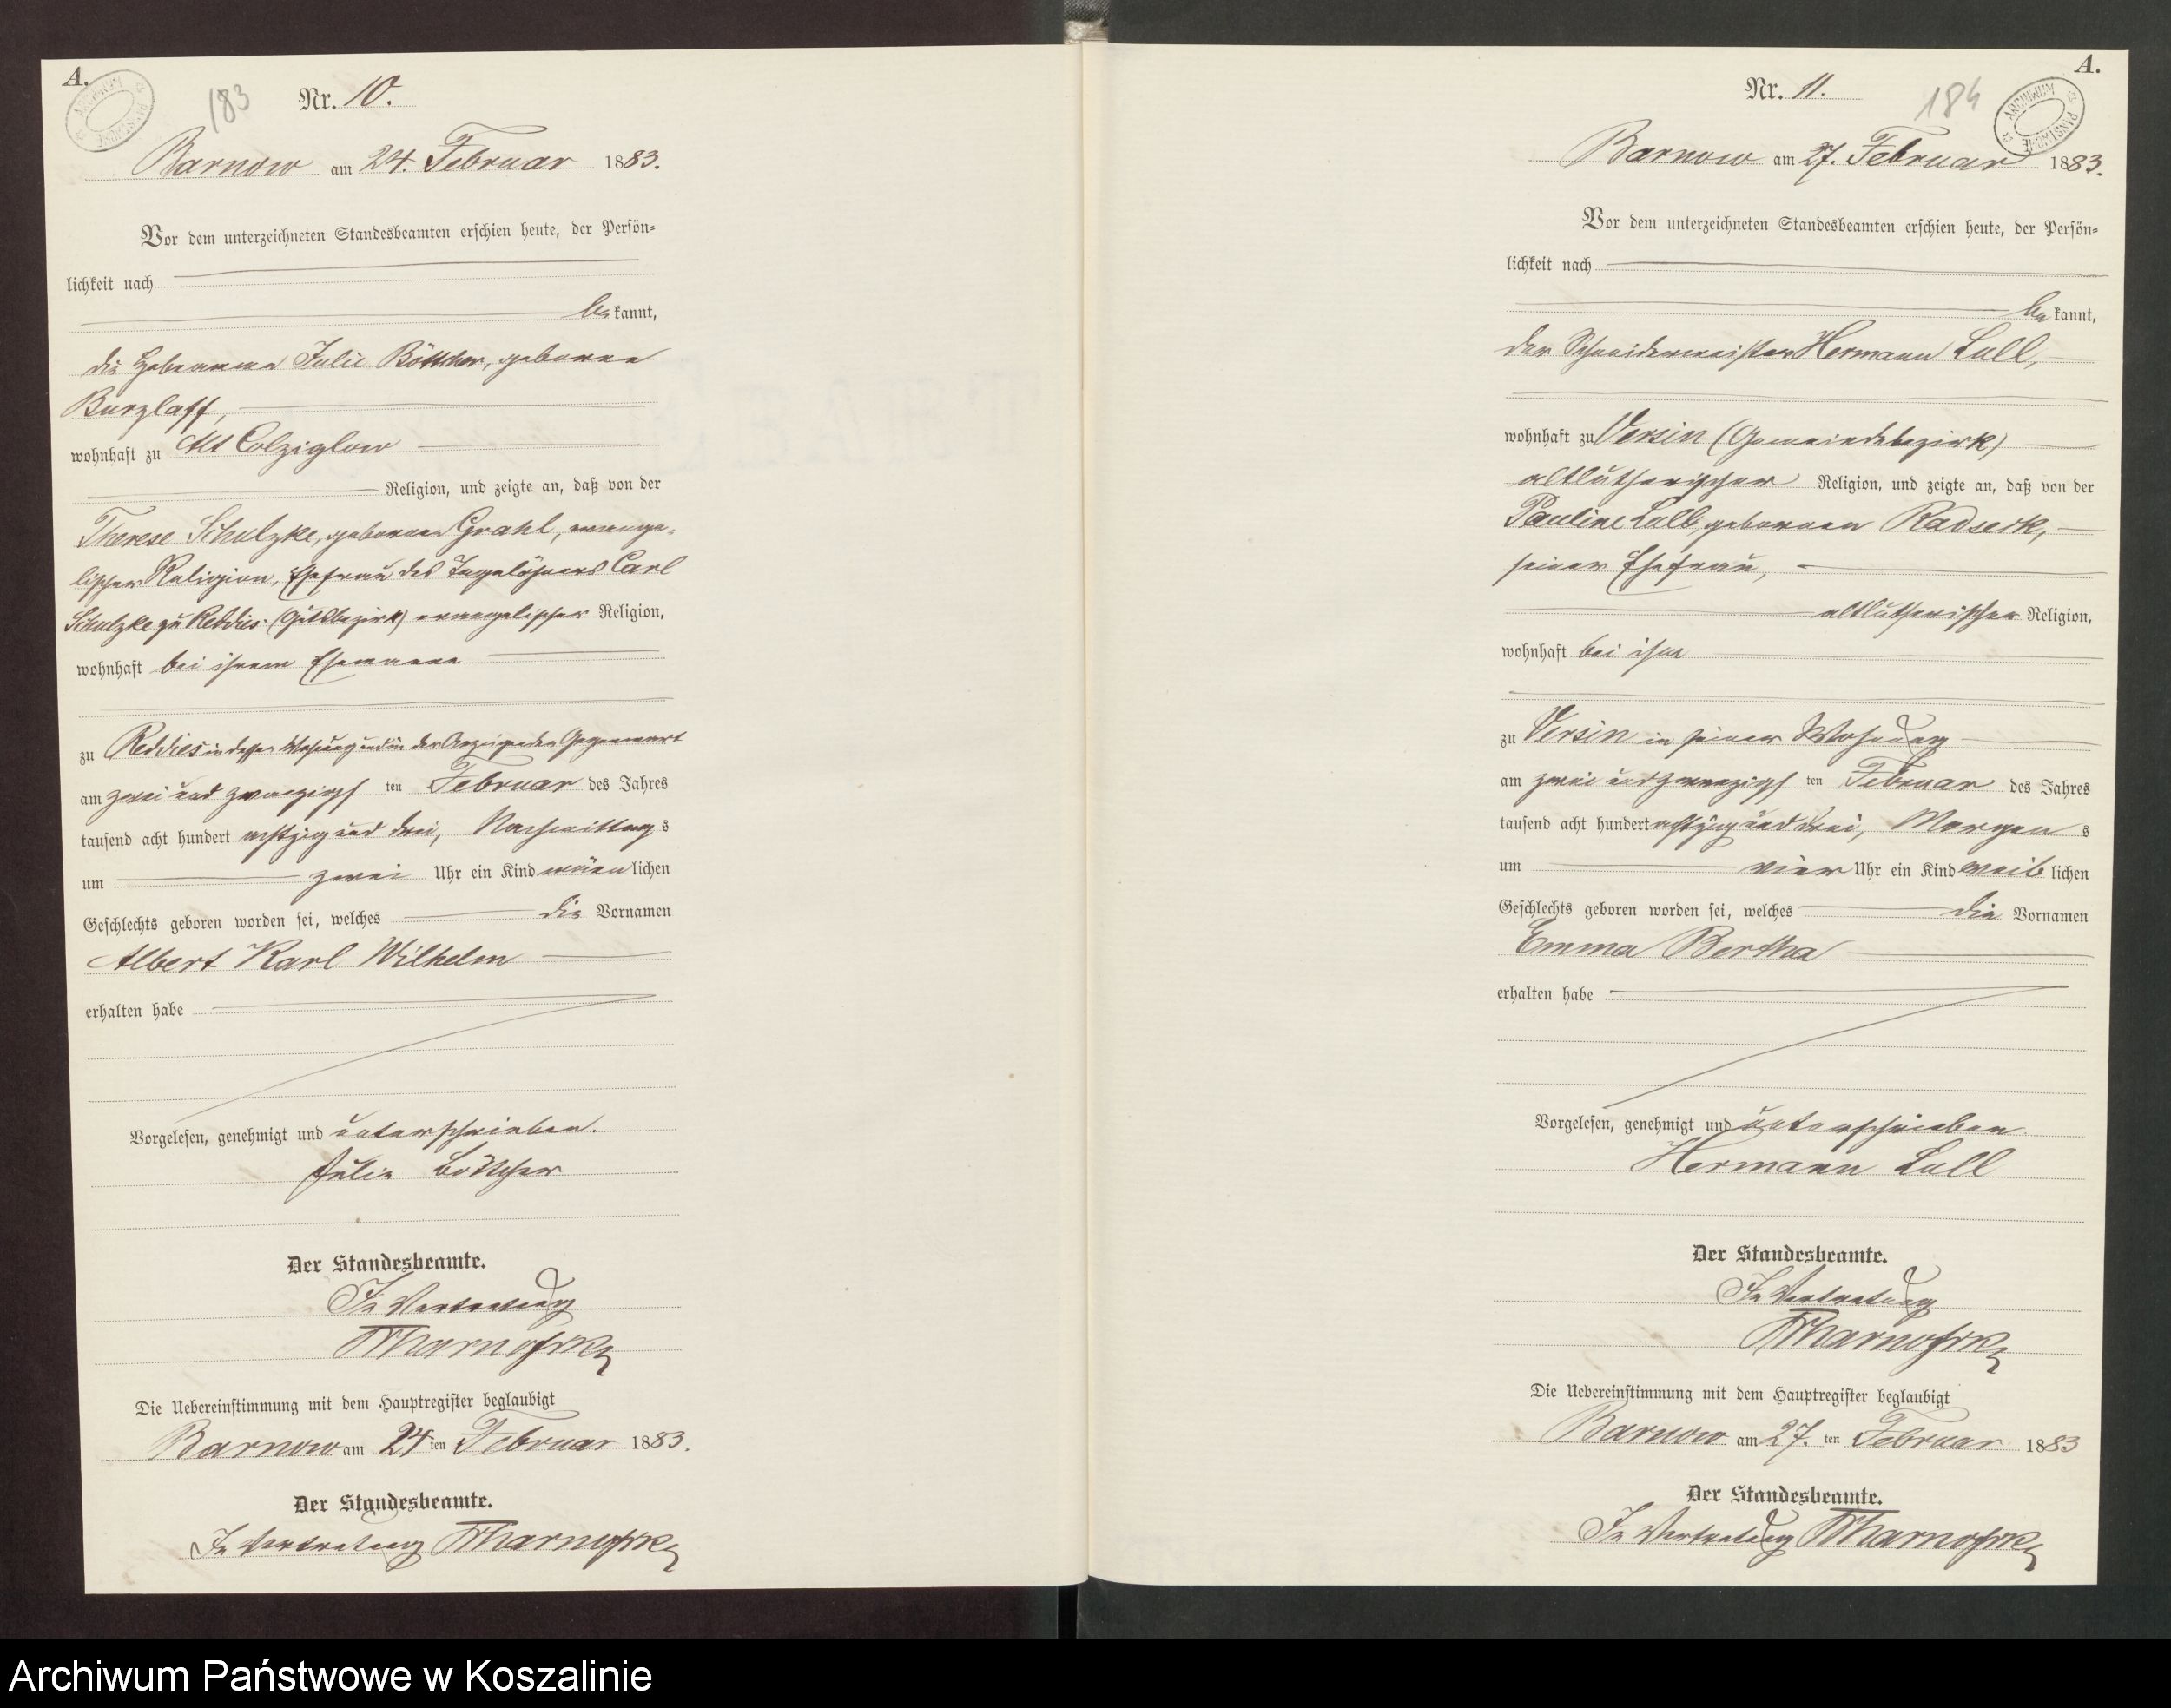 A.
ARCHIWUM PAŃSTWOWE
183
Nr. 10.
Barnow am 24. Februar 1883.
Vor dem unterzeichneten Standesbeamten erschien heute, der Persön=
lichkeit nach
bekannt,
die Hebamme Julie Böttcher, geborene
Burzlaff,
wohnhaft zu Alt Colziglow
Religion, und zeigte an, daß von der
Therese Schulzke, geborenen Grahl, evange-
lischer Religion, Ehefrau des Tagelöhners Carl
Schulzke zu Reddies (Gutsbezirk) evangelischer Religion,
wohnhaft bei ihrem Ehemanne
zu Reddies in dessen Wohnung und in der Anzeigenden Gegenwart
am zwei und zwanzigsten Februar des Jahres
tausend acht hundert achtzig und drei, Nachmittags
um zwei Uhr ein Kind männlichen
Geschlechts geboren worden sei, welches die Vornamen
Albert Karl Wilhelm
erhalten habe
Vorgelesen, genehmigt und unterschrieben.
Julie Böttcher
Der Standesbeamte.
In Vertretung
Die Uebereinstimmung mit dem Hauptregister beglaubigt
Barnow am 24ten Februar 1883.
Der Standesbeamte.
In Vertretung
A.
ARCHIWUM PAŃSTWOWE
184
Nr. 11.
Barnow am 27. Februar 1883.
Vor dem unterzeichneten Standesbeamten erschien heute, der Persön=
lichkeit nach
bekannt,
der Schneidermeister Hermann Lall,
wohnhaft zu Versin (Gemeindebezirk)
altlutherischer Religion, und zeigte an, daß von der
Pauline Lall, geborenen Radseck,
seiner Ehefrau,
altlutherischer Religion,
wohnhaft bei ihm
zu Versin in seiner Wohnung
am zwei und zwanzigsten Februar des Jahres
tausend acht hundert achtzig und drei, Morgens
um vier Uhr ein Kind weiblichen
Geschlechts geboren worden sei, welches die Vornamen
Emma Bertha
erhalten habe
Vorgelesen, genehmigt und unterschrieben.
Hermann Lall
Der Standesbeamte.
In Vertretung
Die Uebereinstimmung mit dem Hauptregister beglaubigt
Barnow am 27. ten Februar 1883
Der Standesbeamte.
In Vertretung
Archiwum Państwowe w Koszalinie